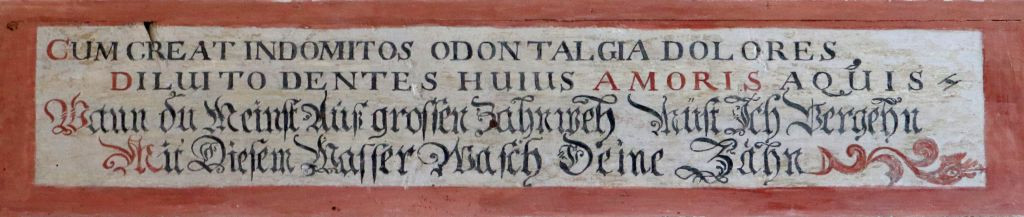 CUM CREAT INDOMITOS ODONTALGIA DOLORES,
DILUITO DENTES HUIUS AMORIS AQUIS
Wann du Meinst Auß grossen Zahnweh Müst Ich Vergehn
Mit Diesem Wasser Wasch Deine Zähn